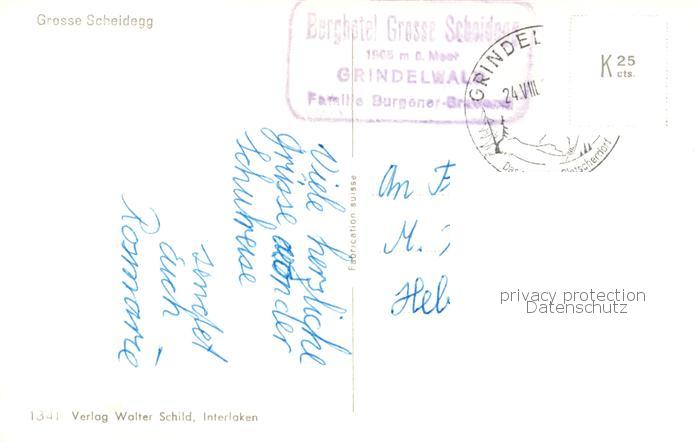 Grosse Scheidegg
Berghotel Grosse Scheidegg
1965 m ü. Meer
GRINDELWALD
Familie Burgener-
GRINDEL
24.VIII.
K 25
cts.
Viele herzliche
Grüsse von der
Schulreise
sendet
auch
Rosmarie
Fabrication suisse
An F
M.
Heb
privacy protection
Datenschutz
1341 Verlag Walter Schild, Interlaken